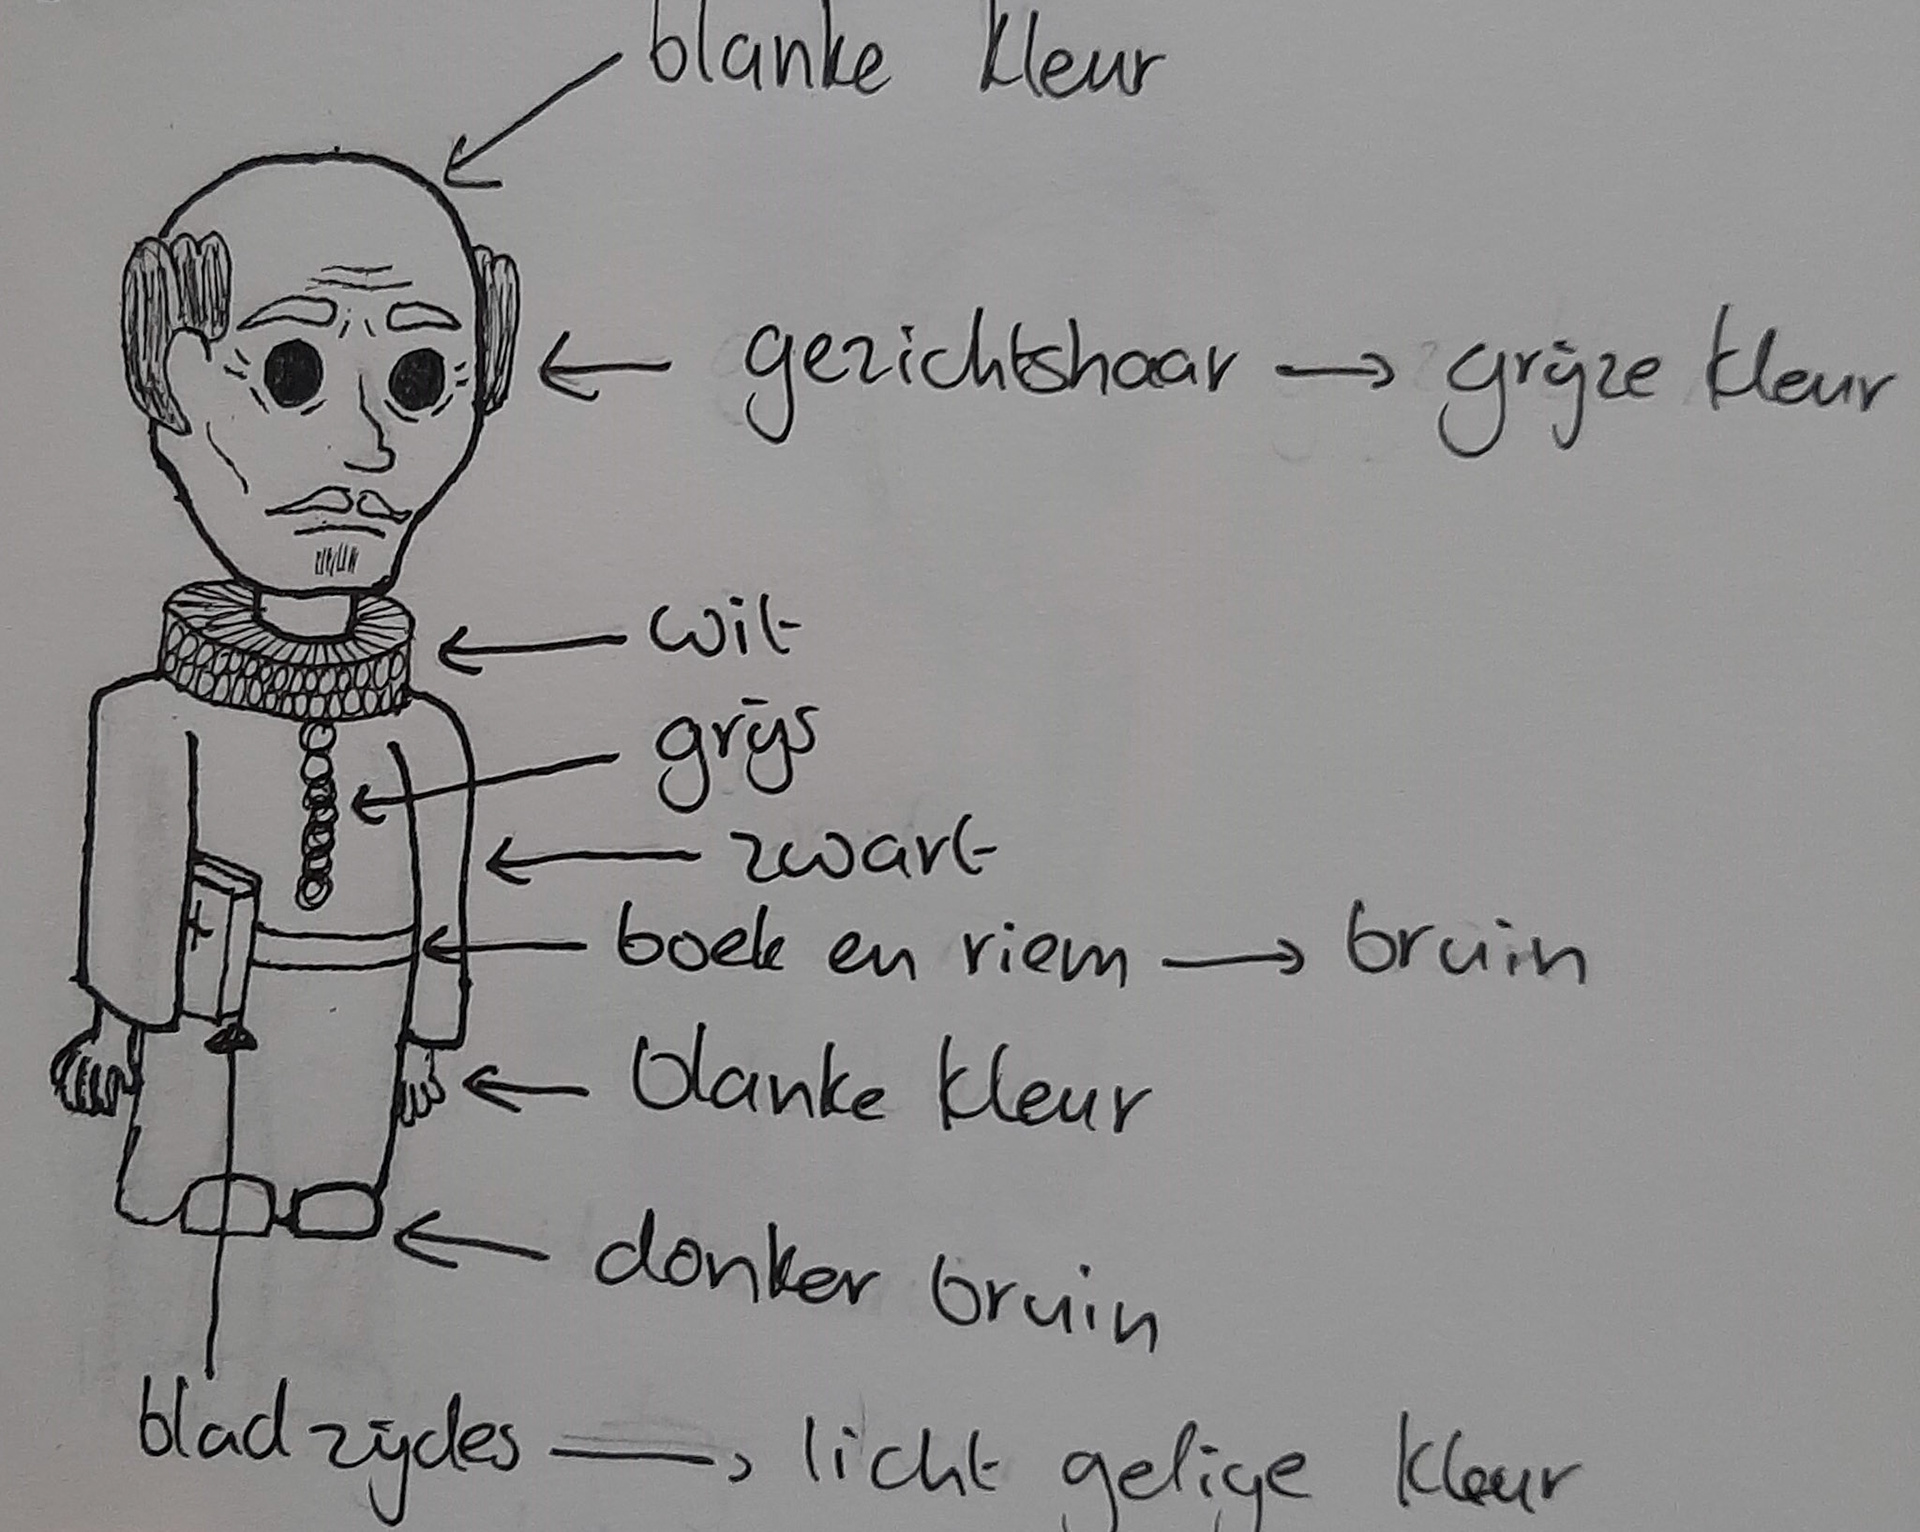 blanke kleur
gezichtshaar → grijze kleur
wit
grijs
zwart
boek en riem → bruin
blanke kleur
donker bruin
bladzijdes → licht gelige kleur